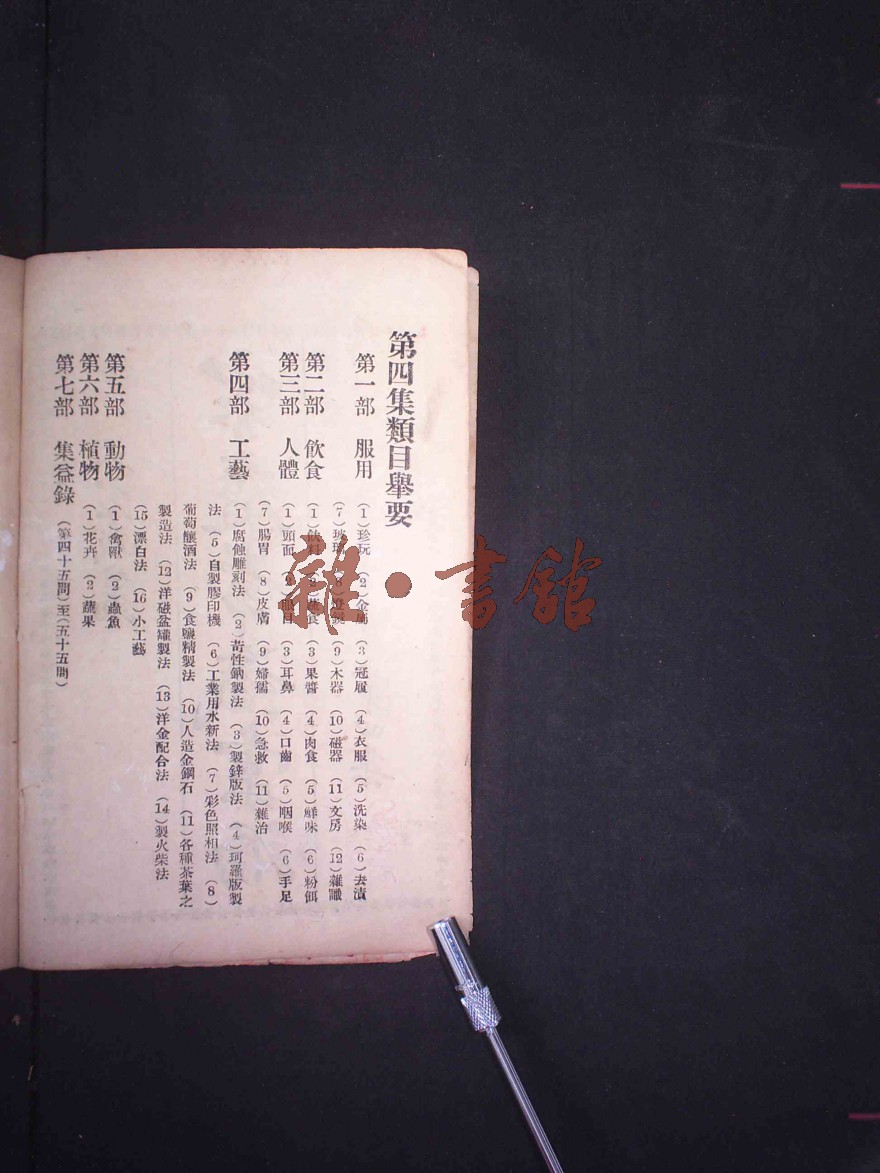 第四集類目舉要
第一部 服用 (1)珍玩 (2)金 (3)冠履 (4)衣服 (5)洗染 (6)去漬
(7)玻 (9)木器 (10)磁器 (11)文房 (12)雜識
第二部 飲食 (1)飲料 (2)蔬食 (3)果醬 (4)肉食 (5)鮮味 (6)粉餌
第三部 人體 (1)頭面 (2)眼目 (3)耳鼻 (4)口齒 (5)咽喉 (6)手足
(7)腸胃 (8)皮膚 (9)婦孺 (10)急救 (11)雜治
第四部 工藝 (1)腐蝕雕刻法 (2)苛性鈉製法 (3)製鋅版法 (4)珂羅版製
法 (5)自製膠印機 (6)工業用水新法 (7)彩色照相法 (8)
葡萄釀酒法 (9)食鹽精製法 (10)人造金鋼石 (11)各種茶葉之
製造法 (12)洋磁盆罐製法 (13)洋金配合法 (14)製火柴法
(15)漂白法 (16)小工藝
第五部 動物 (1)禽獸 (2)蟲魚
第六部 植物 (1)花卉 (2)蔬果
第七部 集益錄 (第四十五問)至(五十五問)
雜·書館